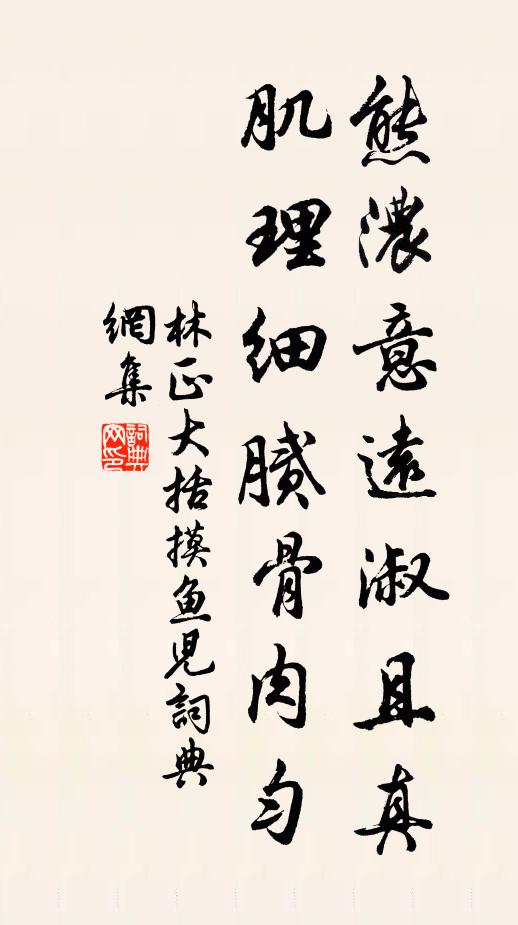 態濃意遠淑且真
肌理細膩骨肉勻
林正大括摸魚兒詞典
網集
詞典
网印